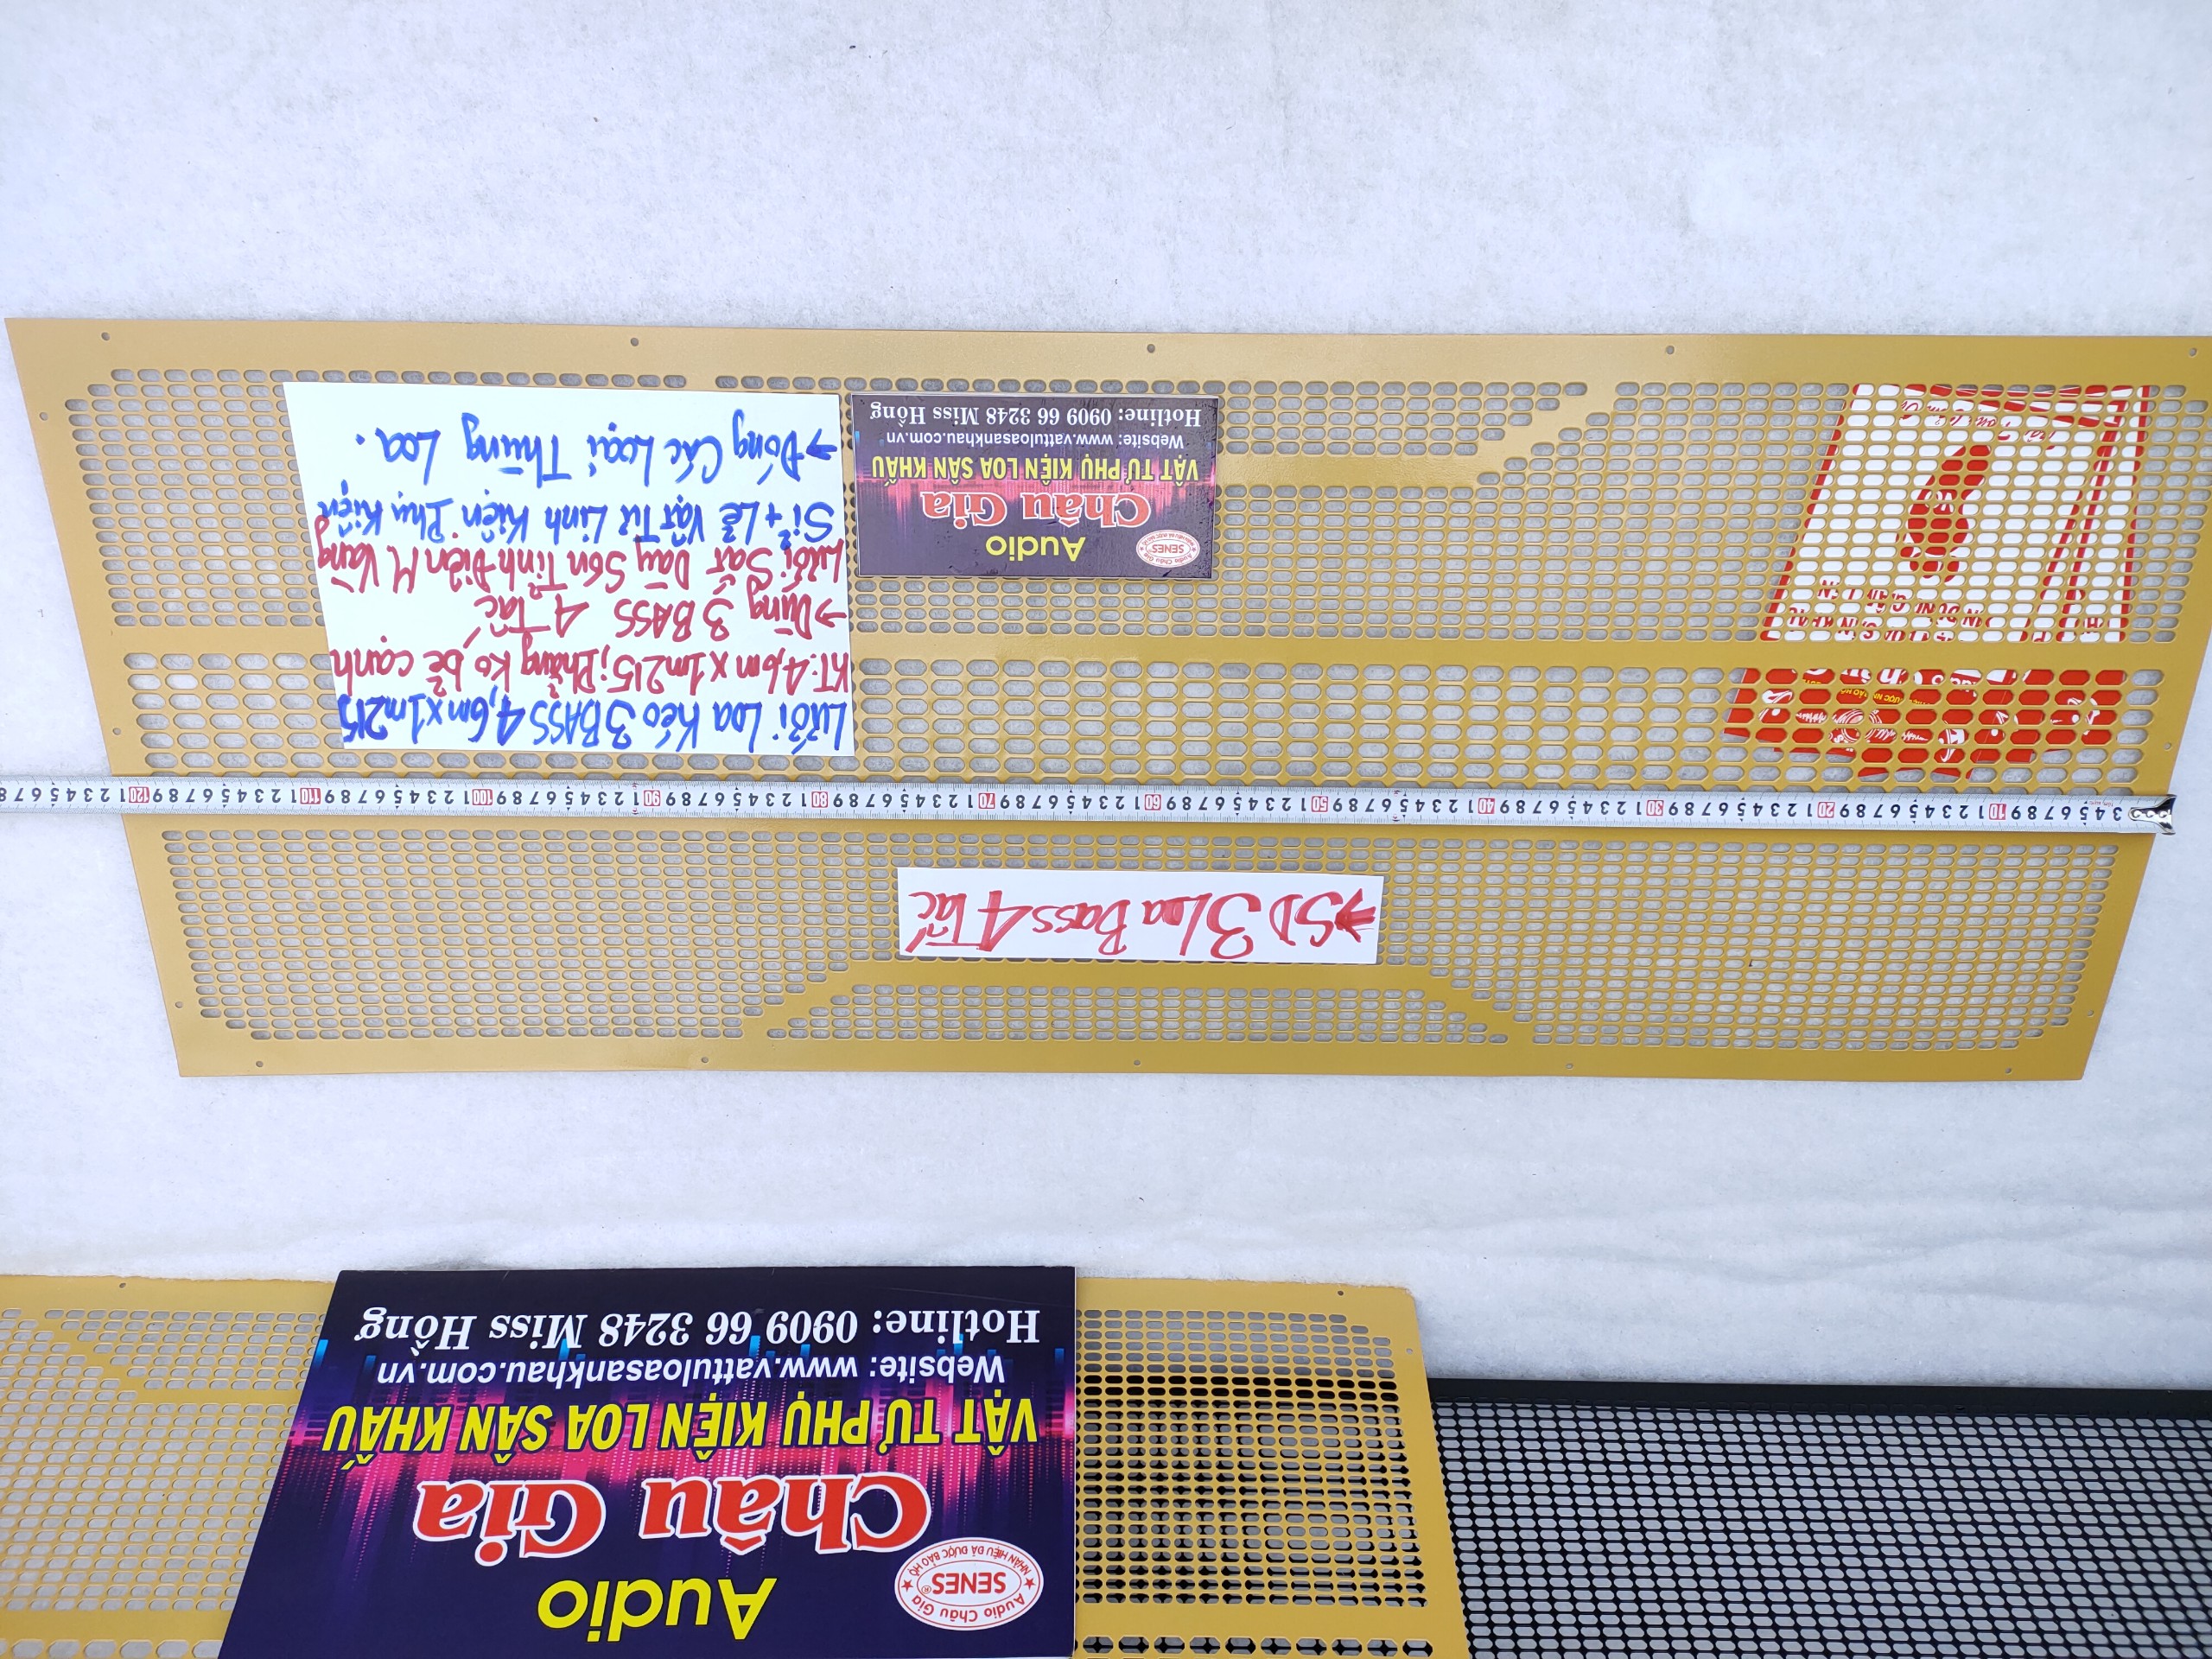 Lưới Loa Kéo 3 BASS 4,6m x 1m215
KT: 4,6m x 1m215; Phẳng Ko bẻ cạnh
→ Dùng 3 BASS 4 Tấc
Lưới Sắt Dày Sơn Tĩnh Điện M Vàng
Sỉ + Lẻ Vật Tư Linh Kiện Phụ Kiện
→ Đóng Các Loại Thùng Loa.
Audio Châu Gia
SENES
Audio
Châu Gia
VẬT TƯ PHỤ KIỆN LOA SÂN KHẤU
Website: www.vattuloasankhau.com.vn
Hotline: 0909 66 3248 Miss Hồng
→ SD 3 Loa Bass 4 Tấc
Audio Châu Gia
SENES®
NHÃN HIỆU ĐÃ ĐƯỢC BẢO HỘ
Audio
Châu Gia
VẬT TƯ PHỤ KIỆN LOA SÂN KHẤU
Website: www.vattuloasankhau.com.vn
Hotline: 0909 66 3248 Miss Hồng
3 4 5 6 7 8 9 10 1 2 3 4 5 6 7 8 9 20 1 2 3 4 5 6 7 8 9 30 1 2 3 4 5 6 7 8 9 40 1 2 3 4 5 6 7 8 9 50 1 2 3 4 5 6 7 8 9 60 1 2 3 4 5 6 7 8 9 70 1 2 3 4 5 6 7 8 9 80 1 2 3 4 5 6 7 8 9 90 1 2 3 4 5 6 7 8 9 100 1 2 3 4 5 6 7 8 9 110 1 2 3 4 5 6 7 8 9 120 1 2 3 4 5 6 7 8